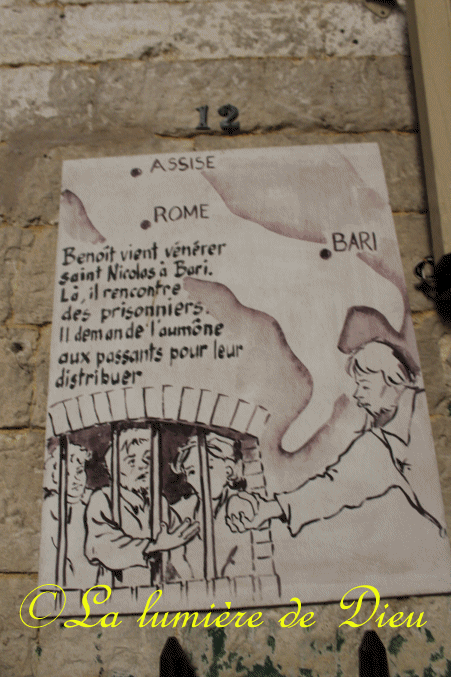 12
ASSISE
ROME
BARI
Benoît vient vénérer
saint Nicolas à Bari.
Là, il rencontre
des prisonniers.
Il demande l'aumône
aux passants pour leur
distribuer
©La lumière de Dieu